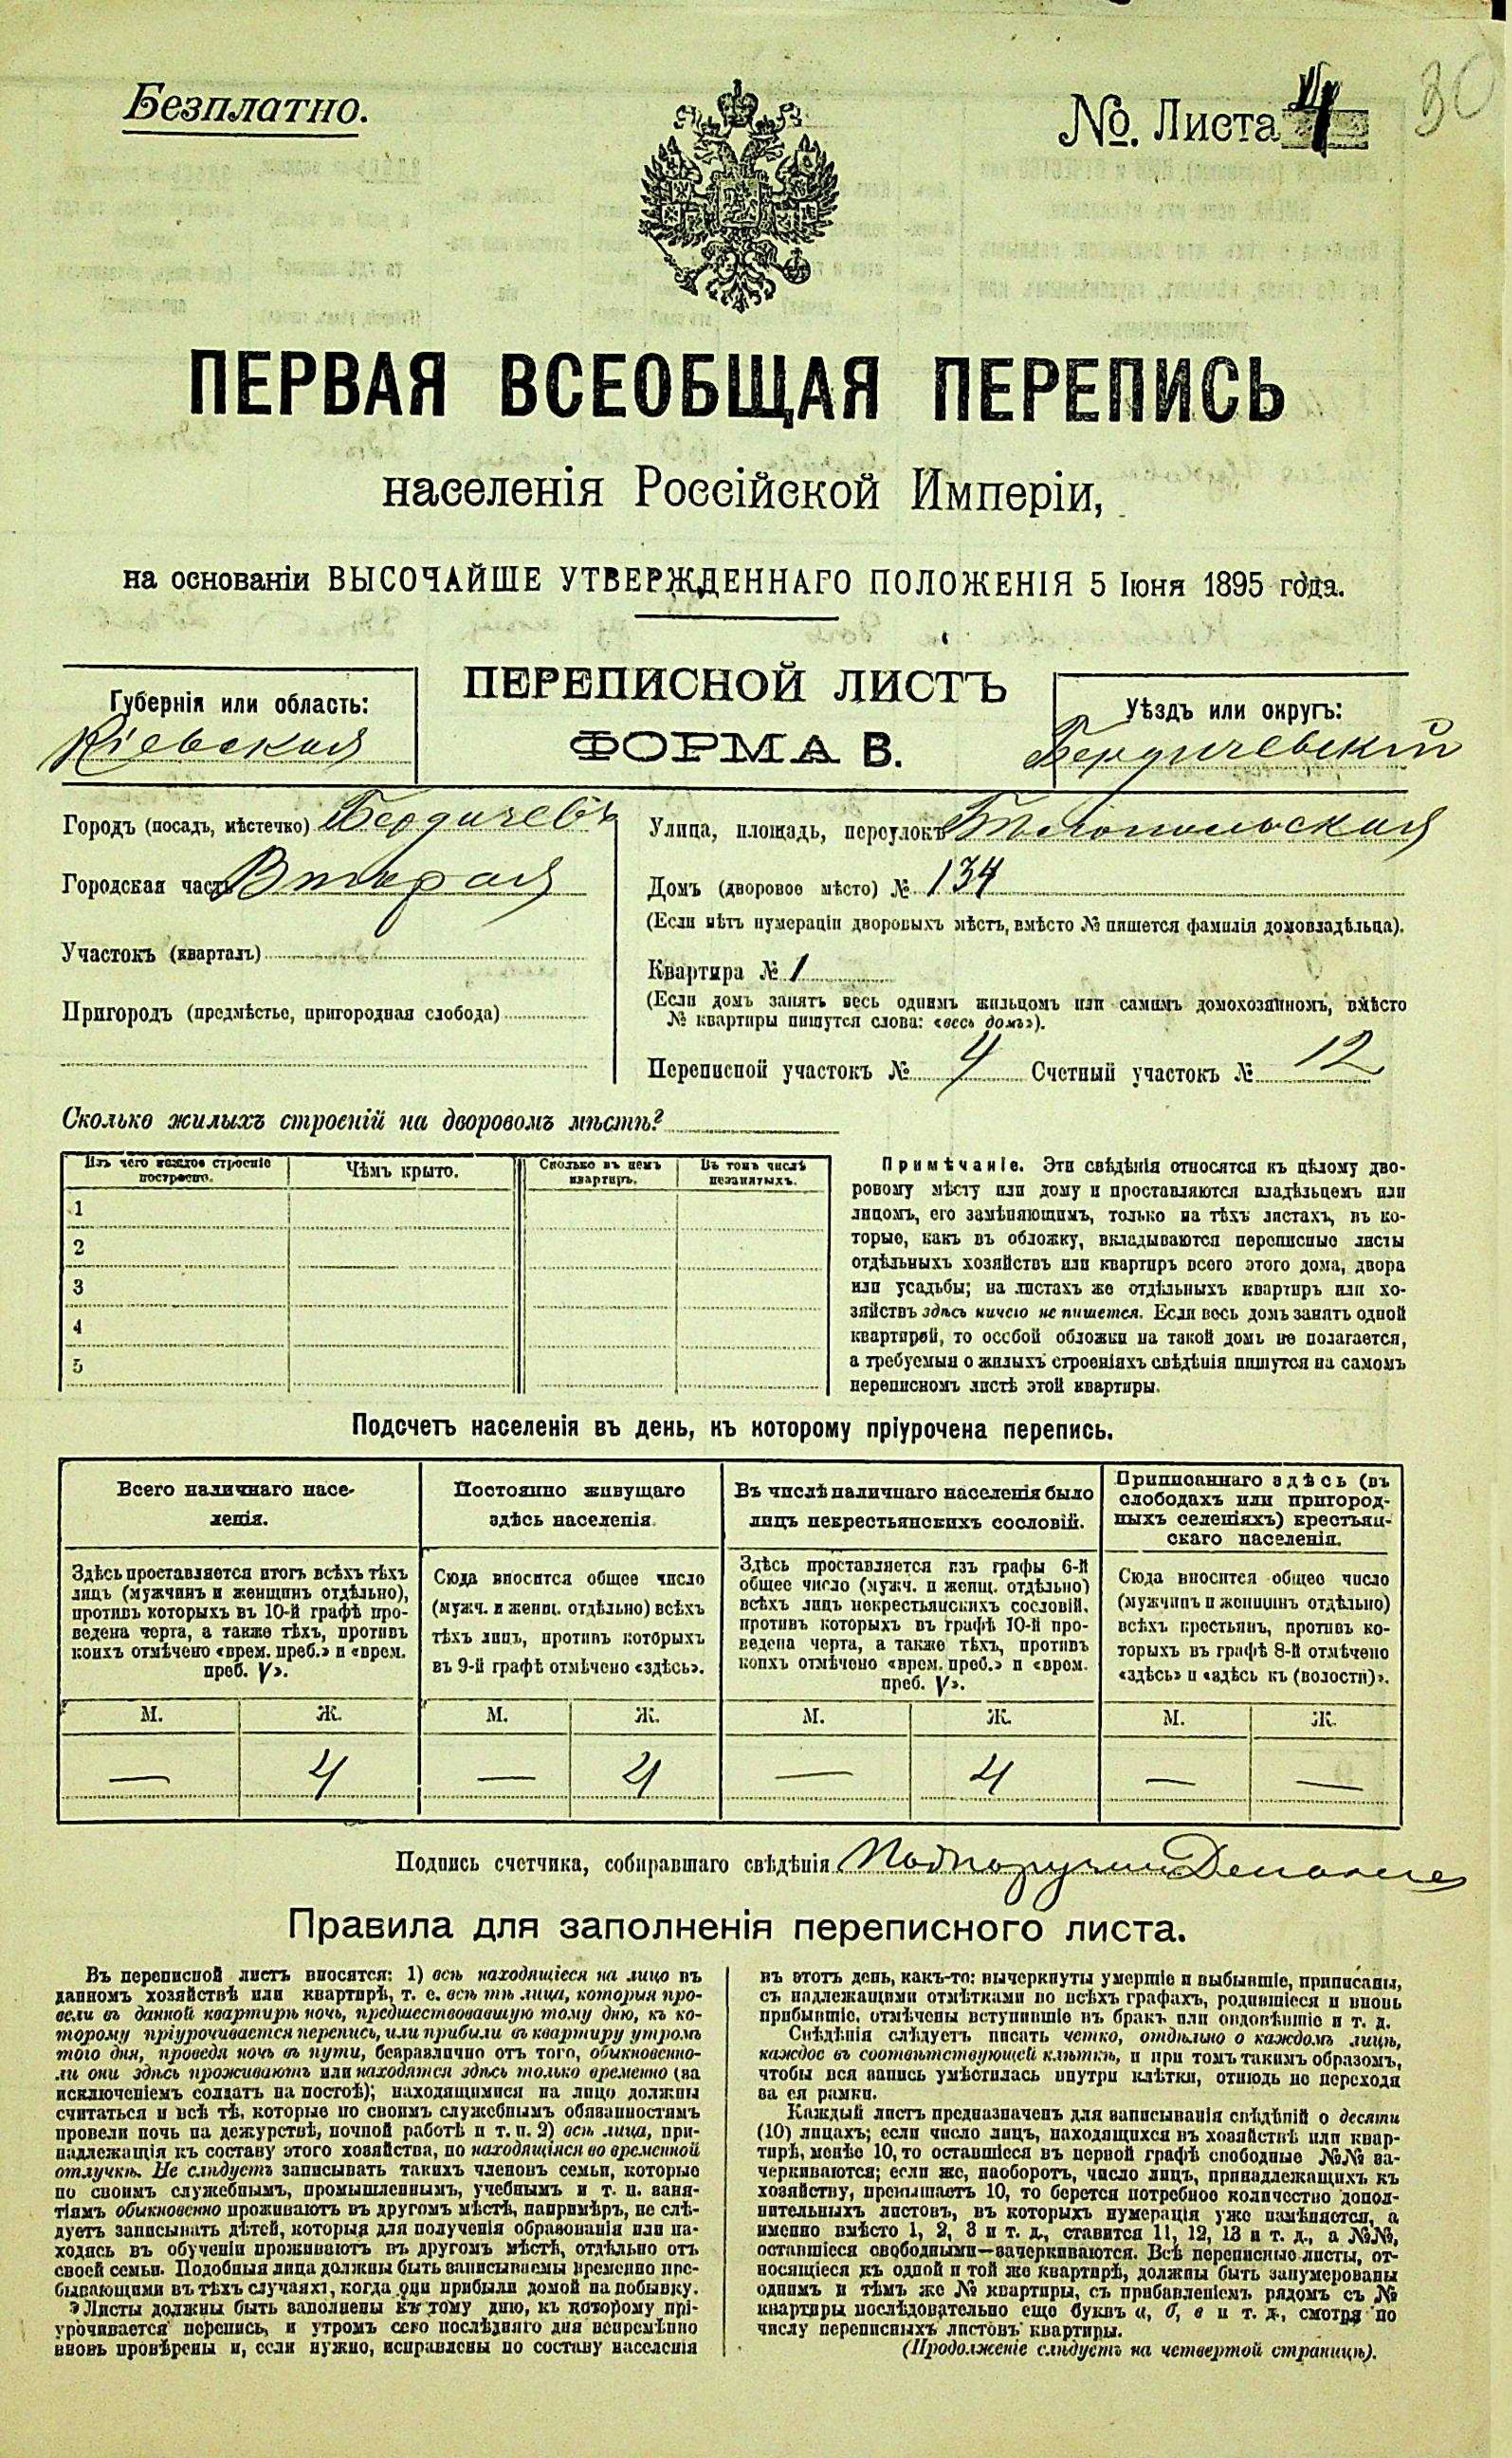 Безплатно.
№. Листа 4
30
ПЕРВАЯ ВСЕОБЩАЯ ПЕРЕПИСЬ
населенія Россійской Имперіи,
на основаніи ВЫСОЧАЙШЕ УТВЕРЖДЕННАГО ПОЛОЖЕНІЯ 5 Іюня 1895 года.
ПЕРЕПИСНОЙ ЛИСТЪ
ФОРМА В.
Губернія или область:
Кіевская
Уѣздъ или округъ:
Бердичевскій
Городъ (посадъ, мѣстечко) Бердичевъ
Городская часть Вторая
Участокъ (кварталъ)
Пригородъ (предмѣстье, пригородная слобода)
Улица, площадь, переулокъ Бѣлопольская
Домъ (дворовое мѣсто) № 134
(Если нѣтъ нумераціи дворовыхъ мѣстъ, вмѣсто № пишется фамилія домовладѣльца).
Квартира № 1
(Если домъ занятъ весь однимъ жильцомъ или самимъ домохозяиномъ, вмѣсто
№ квартиры пишутся слова: «весь домъ»).
Переписной участокъ № 4 Счетный участокъ № 12
Сколько жилыхъ строеній на дворовомъ мѣстѣ?
Изъ чего каждое строеніе
построено.
Чѣмъ крыто.
Сколько въ немъ
квартиръ.
Въ томъ числѣ
незанятыхъ.
1
2
3
4
5
Примѣчаніе. Эти свѣдѣнія относятся къ цѣлому дво-
ровому мѣсту или дому и проставляются владѣльцемъ или
лицомъ, его замѣняющимъ, только на тѣхъ листахъ, въ ко-
торые, какъ въ обложку, вкладываются переписные листы
отдѣльныхъ хозяйствъ или квартиръ всего этого дома, двора
или усадьбы; на листахъ же отдѣльныхъ квартиръ или хо-
зяйствъ здѣсь ничего не пишется. Если весь домъ занятъ одной
квартирой, то особой обложки на такой домъ не полагается,
а требуемыя о жилыхъ строеніяхъ свѣдѣнія пишутся на самомъ
переписномъ листѣ этой квартиры.
Подсчетъ населенія въ день, къ которому пріурочена перепись.
Всего наличнаго насе-
ленія.
Здѣсь проставляется итогъ всѣхъ тѣхъ
лицъ (мужчинъ и женщинъ отдѣльно),
противъ которыхъ въ 10-й графѣ про-
ведена черта, а также тѣхъ, противъ
коихъ отмѣчено «врем. преб.» и «врем.
преб. V».
Постоянно живущаго
здѣсь населенія.
Сюда вносится общее число
(мужч. и женщ. отдѣльно) всѣхъ
тѣхъ лицъ, противъ которыхъ
въ 9-й графѣ отмѣчено «здѣсь».
Въ числѣ наличнаго населенія было
лицъ некрестьянскихъ сословій.
Здѣсь проставляется изъ графы 6-й
общее число (мужч. и женщ. отдѣльно)
всѣхъ лицъ некрестьянскихъ сословій,
противъ которыхъ въ графѣ 10-й про-
ведена черта, а также тѣхъ, противъ
коихъ отмѣчено «врем. преб.» и «врем.
преб. V».
Приписаннаго здѣсь (въ
слободахъ или пригород-
ныхъ селеніяхъ) крестьян-
скаго населенія.
Сюда вносится общее число
(мужчинъ и женщинъ отдѣльно)
всѣхъ крестьянъ, противъ ко-
торыхъ въ графѣ 8-й отмѣчено
«здѣсь» и «здѣсь къ (волости)».
М. Ж. М. Ж. М. Ж. М. Ж.
— 4 — 4 — 4 — —
Подпись счетчика, собиравшаго свѣдѣнія
Правила для заполненія переписного листа.
Въ переписной листъ вносятся: 1) всѣ находящіеся на лицо въ
данномъ хозяйствѣ или квартирѣ, т. е. всѣ тѣ лица, которыя про-
вели въ данной квартирѣ ночь, предшествовавшую тому дню, къ ко-
торому пріурочивается перепись, или прибыли въ квартиру утромъ
того дня, проведя ночь въ пути, безразлично отъ того, обыкновенно-
ли они здѣсь проживаютъ или находятся здѣсь только временно (за
исключеніемъ солдатъ на постоѣ); находящимися на лицо должны
считаться и всѣ тѣ, которые по своимъ служебнымъ обязанностямъ
провели ночь на дежурствѣ, ночной работѣ и т. п. 2) всѣ лица, при-
надлежащія къ составу этого хозяйства, но находящіяся во временной
отлучкѣ. Не слѣдуетъ записывать такихъ членовъ семьи, которые
по своимъ служебнымъ, промышленнымъ, учебнымъ и т. п. заня-
тіямъ обыкновенно проживаютъ въ другомъ мѣстѣ, напримѣръ, не слѣ-
дуетъ записывать дѣтей, которыя для полученія образованія или на-
ходясь въ обученіи проживаютъ въ другомъ мѣстѣ, отдѣльно отъ
своей семьи. Подобныя лица должны быть записываемы временно пре-
бывающими въ тѣхъ случаяхъ, когда они прибыли домой на побывку.
Листы должны быть заполнены къ тому дню, къ которому прі-
урочивается перепись, и утромъ сего послѣдняго дня непремѣнно
вновь провѣрены и, если нужно, исправлены по составу населенія
въ этотъ день, какъ-то: вычеркнуты умершіе и выбывшіе, приписаны,
съ надлежащими отмѣтками по всѣхъ графахъ, родившіеся и вновь
прибывшіе, отмѣчены вступившіе въ бракъ или овдовѣвшіе и т. д.
Свѣдѣнія слѣдуетъ писать четко, отдѣльно о каждомъ лицѣ,
каждое въ соотвѣтствующей клѣткѣ, и при томъ такимъ образомъ,
чтобы вся запись умѣстилась внутри клѣтки, отнюдь не переходя
за ея рамки.
Каждый листъ предназначенъ для записыванія свѣдѣній о десяти
(10) лицахъ; если число лицъ, находящихся въ хозяйствѣ или квар-
тирѣ, менѣе 10, то оставшіеся въ первой графѣ свободные №№ за-
черкиваются; если же, наоборотъ, число лицъ, принадлежащихъ къ
хозяйству, превышаетъ 10, то берется потребное количество допол-
нительныхъ листовъ, въ которыхъ нумерація уже измѣняется, а
именно вмѣсто 1, 2, 3 и т. д., ставится 11, 12, 13 и т. д., а №№,
оставшіеся свободными—зачеркиваются. Всѣ переписные листы, от-
носящіеся къ одной и той же квартирѣ, должны быть занумерованы
однимъ и тѣмъ же № квартиры, съ прибавленіемъ рядомъ съ №
квартиры послѣдовательно еще буквъ а, б, в и т. д., смотря по
числу переписныхъ листовъ квартиры.
(Продолженіе слѣдуетъ на четвертой страницѣ).